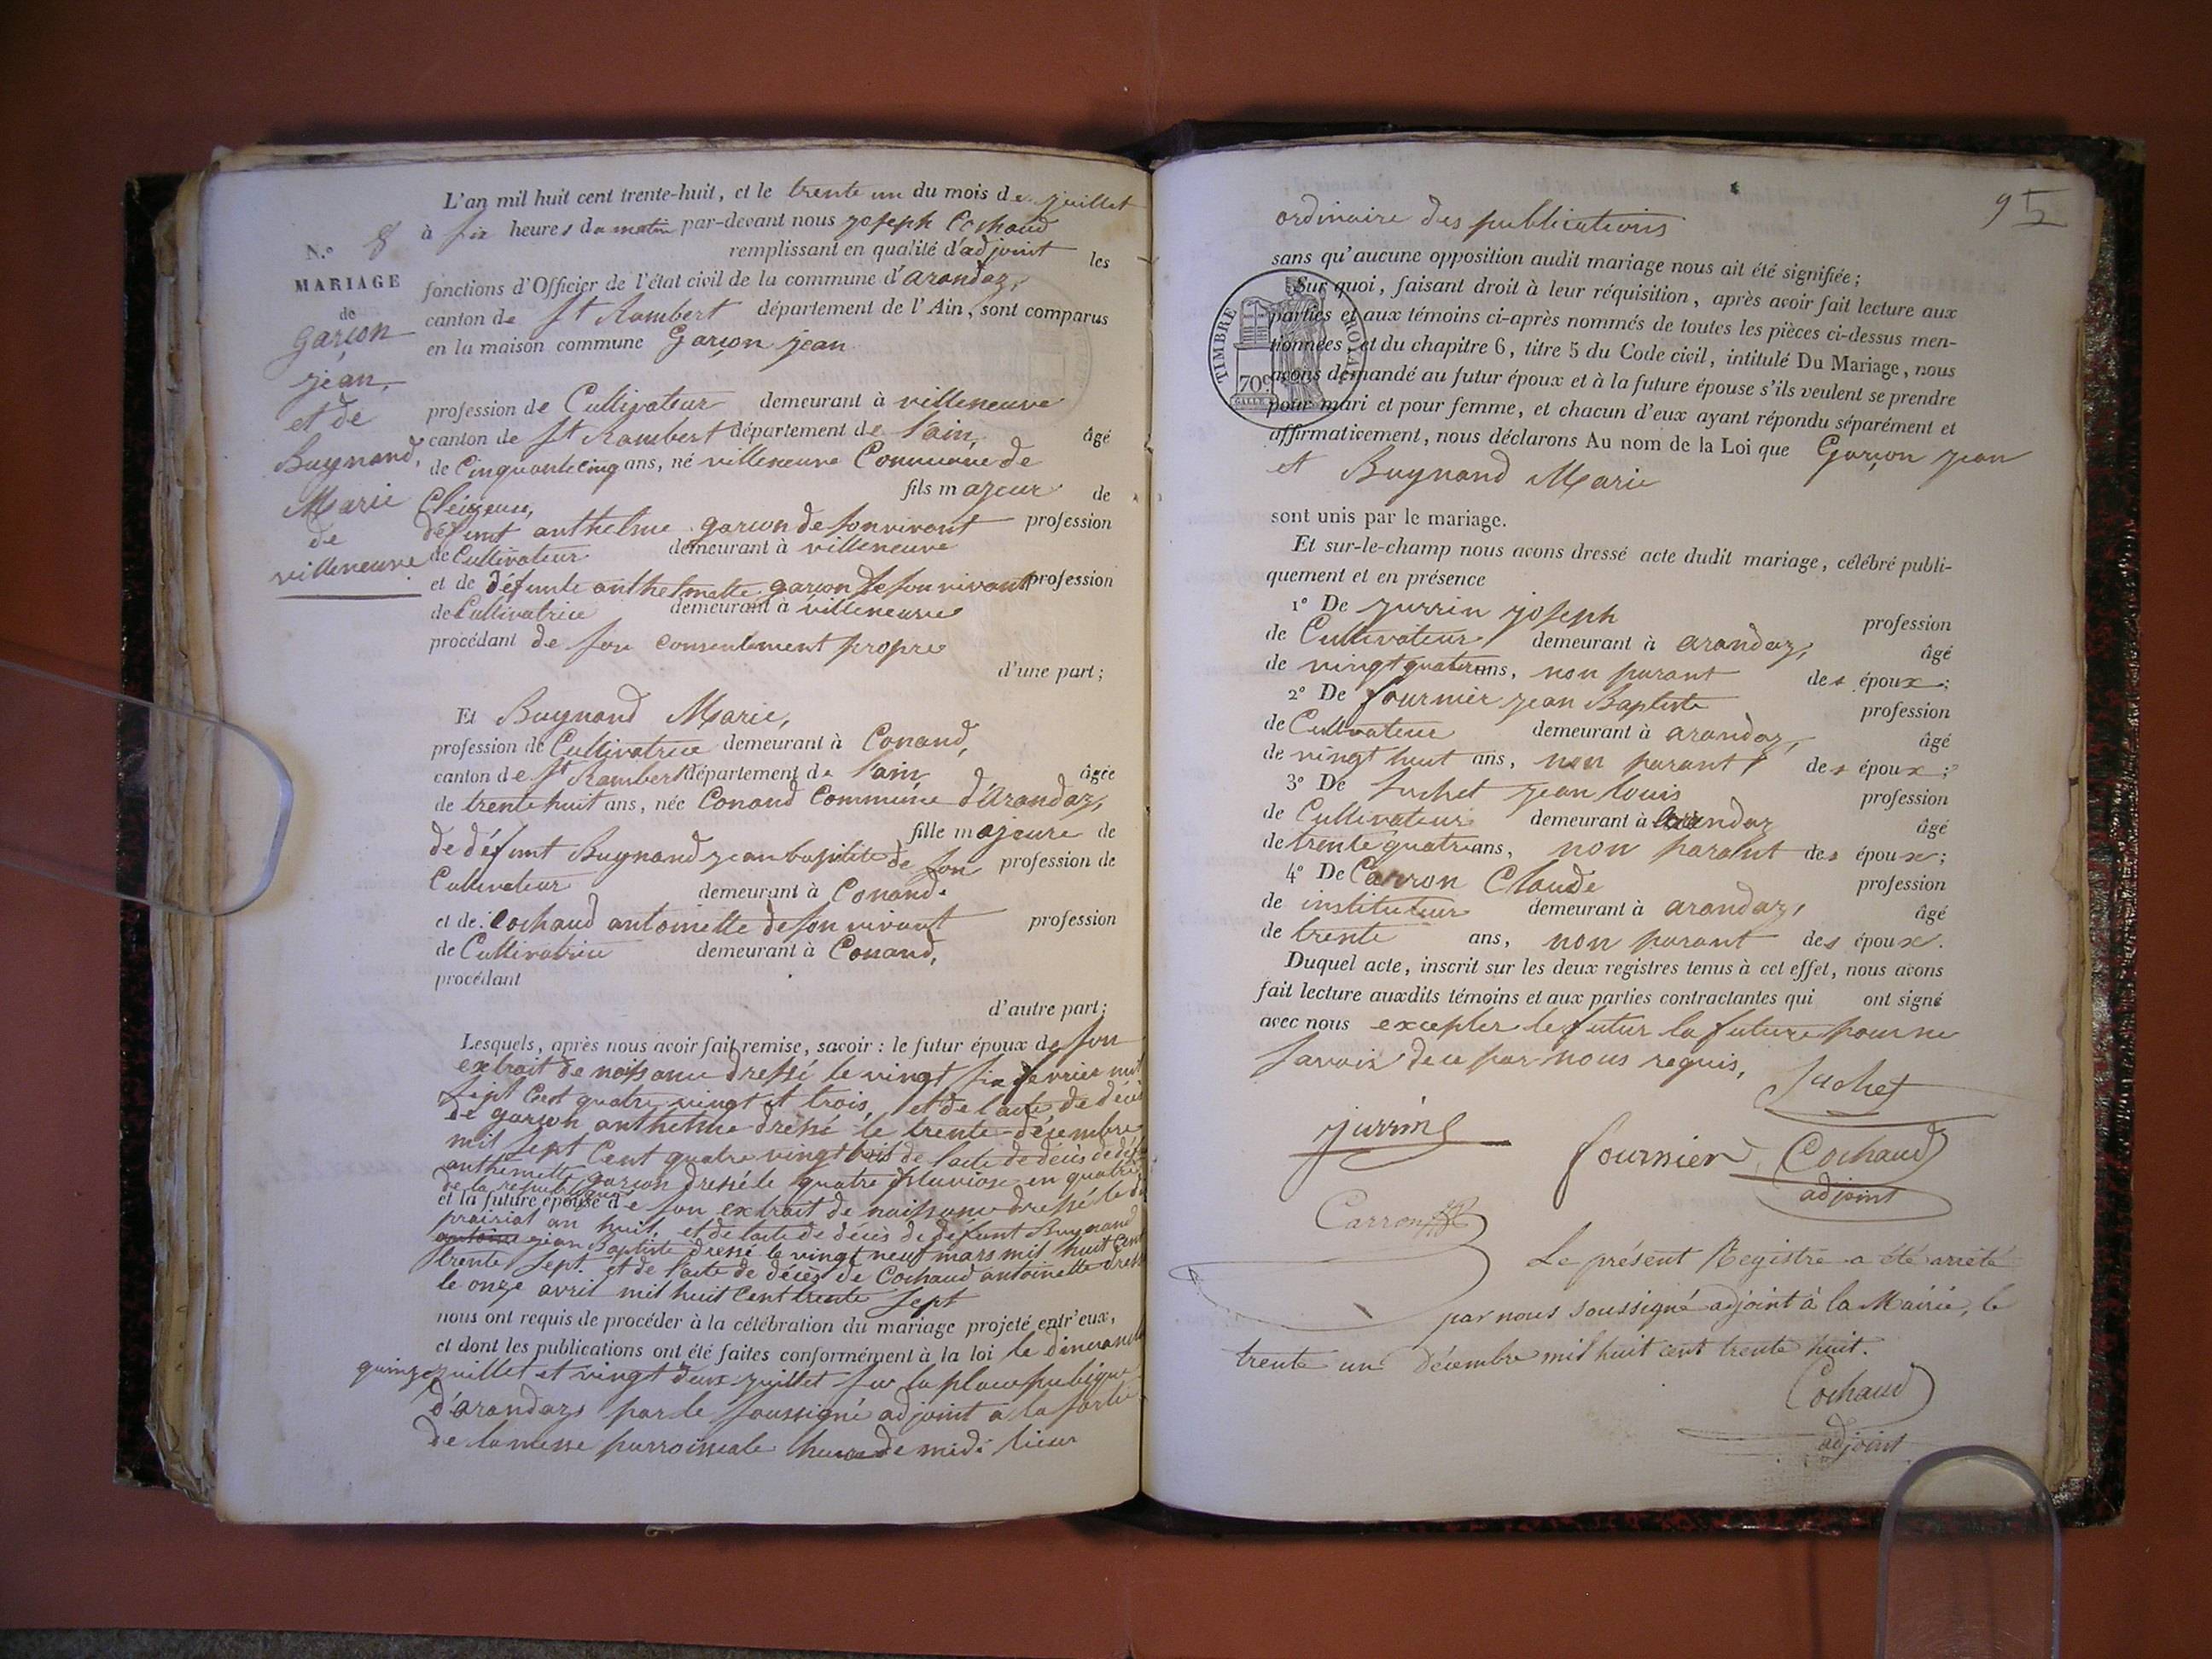 L'an mil huit cent trente-huit, et le trente un du mois de juillet
à six heures du matin par-devant nous joseph Cochaud
remplissant en qualité d'adjoint les
fonctions d'Officier de l'état civil de la commune d'arandaz,
canton de St Rambert département de l'Ain, sont comparus
en la maison commune Garçon jean
N.° 8
MARIAGE
de
garçon
jean,
et de
Buynand,
Marie
de
villeneuve
profession de Cultivateur demeurant à villeneuve
canton de St Rambert département de l'ain, âgé
de Cinquante cinq ans, né villeneuve Commune de
Cleizeux, fils majeur de
défunt anthelme garçon de son vivant profession
de Cultivateur demeurant à villeneuve
et de défunte anthelmette garçon de son vivant profession
de Cultivatrice demeurant à villeneuve
procédant de son consentement propre
d'une part;
Et Buynand Marie,
profession de Cultivatrice demeurant à Conand,
canton de St Rambert département de l'ain âgée
de trente huit ans, née Conand Commune d'Arandaz,
fille majeure de
de défunt Buynand jean baptiste de son profession de
Cultivateur demeurant à Conand.
et de Cochaud antoinette de son vivant profession
de Cultivatrice demeurant à Conand,
procédant
d'autre part;
Lesquels, après nous avoir fait remise, savoir: le futur époux de son
extrait de naissance dressé le vingt six fevrier mil
sept Cent quatre vingt et trois, et de l'acte de décès
de garçon anthelme dressé le trente décembre
mil sept Cent quatre vingt trois de l'acte de décès de
anthemette garçon dressé le quatre pluviose en quatrie
de la republique
et la future épouse de son extrait de naissance dressé le
prairial an huit, et de l'acte de décès de défunt Buynand
antoine jean Baptiste dressé le vingt neuf mars mil huit Cent
trente sept et de l'acte de décès de Cochaud antoinette dressé
le onze avril mil huit Cent trente sept
nous ont requis de procéder à la célébration du mariage projeté entr'eux,
et dont les publications ont été faites conformément à la loi le dimanche
quinze juillet et vingt deux juillet sur la place publique
d'arandaz par le soussigné adjoint à la sortie
de la messe parroissiale heure de midi lieux
95
ordinaire des publications
sans qu'aucune opposition audit mariage nous ait été signifiée;
Sur quoi, faisant droit à leur réquisition, après avoir fait lecture aux
parties et aux témoins ci-après nommés de toutes les pièces ci-dessus men-
tionnées, et du chapitre 6, titre 5 du Code civil, intitulé Du Mariage, nous
avons demandé au futur époux et à la future épouse s'ils veulent se prendre
pour mari et pour femme, et chacun d'eux ayant répondu séparément et
affirmativement, nous déclarons Au nom de la Loi que Garçon jean
et Buynand Marie
TIMBRE ROYAL
70c
sont unis par le mariage.
Et sur-le-champ nous avons dressé acte dudit mariage, célébré publi-
quement et en présence
1° De jurrin joseph profession
de Cultivateur demeurant à arandaz, âgé
de vingt quatre ans, non parant des époux;
2° De fournier jean Baptiste profession
de Cultivateur demeurant à arandaz, âgé
de vingt huit ans, non parant des époux;
3° De Juchet jean louis profession
de Cultivateur demeurant à arandaz âgé
de trente quatre ans, non parant des époux;
4° De Carron Claude profession
de instituteur demeurant à arandaz, âgé
de trente ans, non parant des époux.
Duquel acte, inscrit sur les deux registres tenus à cet effet, nous avons
fait lecture auxdits témoins et aux parties contractantes qui ont signé
avec nous excepter le futur la future pour ne
savoir de ce par nous requis,
Juchet
jurrin
fournier Cochaud
adjoint
Carron
Le présent Registre a été arrêté
par nous soussigné adjoint à la Mairie, le
trente un Décembre mil huit cent trente huit.
Cochaud
adjoint